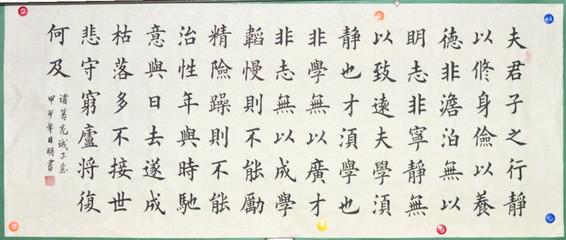 夫君子之行靜
以修身儉以養
德非澹泊無以
明志非寧靜無
以致遠夫學湏
靜也才湏學也
非學無以廣才
非志無以成學
韜慢則不能勵
精險躁則不能
治性年與時馳
意與日去遂成
枯落多不接世
悲守窮廬將復
何及
諸葛亮誡子書
甲午年日明書